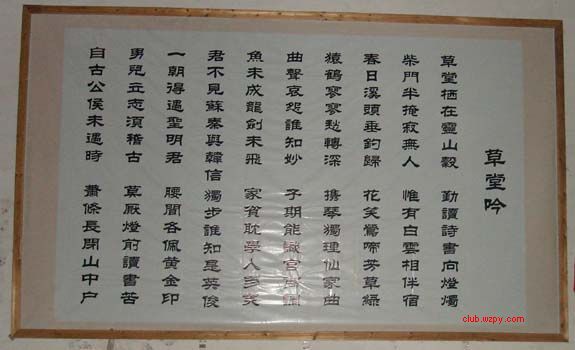 草堂吟
草堂栖在靈山穀 勤讀詩書向燈燭
柴門半掩寂無人 惟有白雲相伴宿
春日溪頭垂釣歸 花笑鶯啼芳草綠
猿鶴寥寥愁轉深 携琴獨理仙家曲
曲聲哀怨誰知妙 子期能識宮商調
魚未成龍劍未飛 家貧耽學人多笑
君不見蘇秦與韓信 獨步誰知是英俊
一朝得遇聖明君 腰間各佩黃金印
男兒立志須稽古 莫厭燈前讀書苦
自古公侯未遇時 蕭條長閉山中户
club.wzpy.com